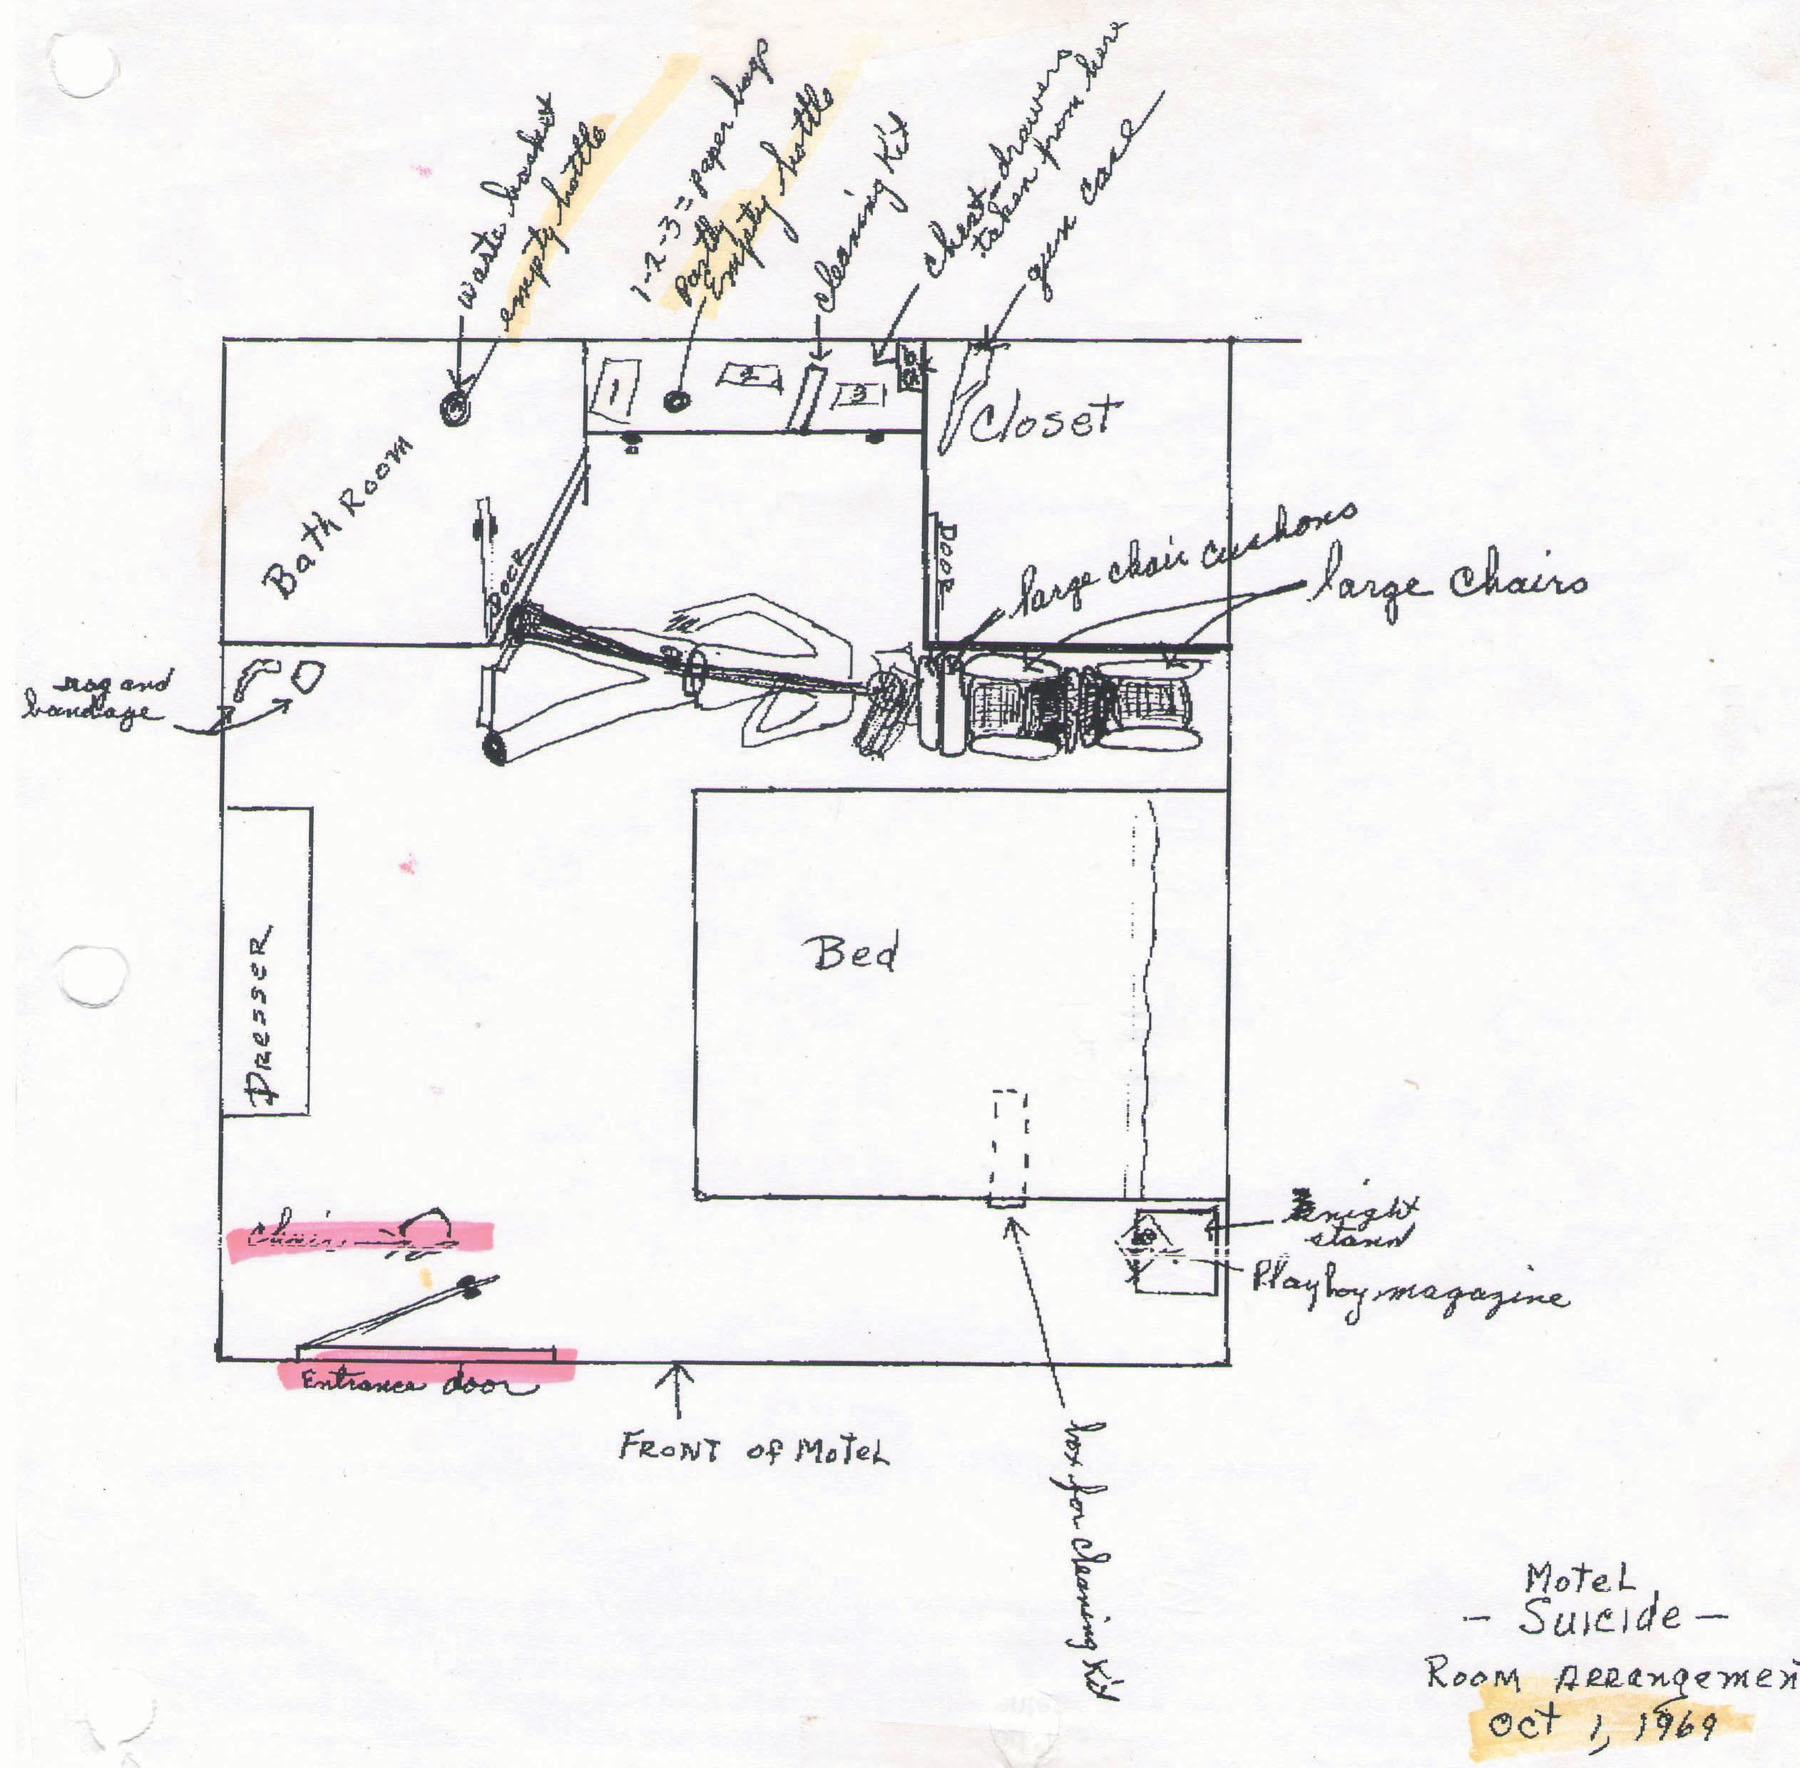 waste basket
empty bottle
1-2-3 = paper bags
Partly
Empty bottle
cleaning Kit
chest-drawers
taken from here
gun case
1
2
3
Closet
Bath Room
DOOR
DOOR
large chair cushons
large chairs
rag and
bandage
Dresser
Bed
Chair
night
stand
Playboy magazine
Entrance door
FRONT of MoTeL
box for cleaning Kit
MoTeL
- Suicide -
Room ARRangemen
Oct 1, 1969